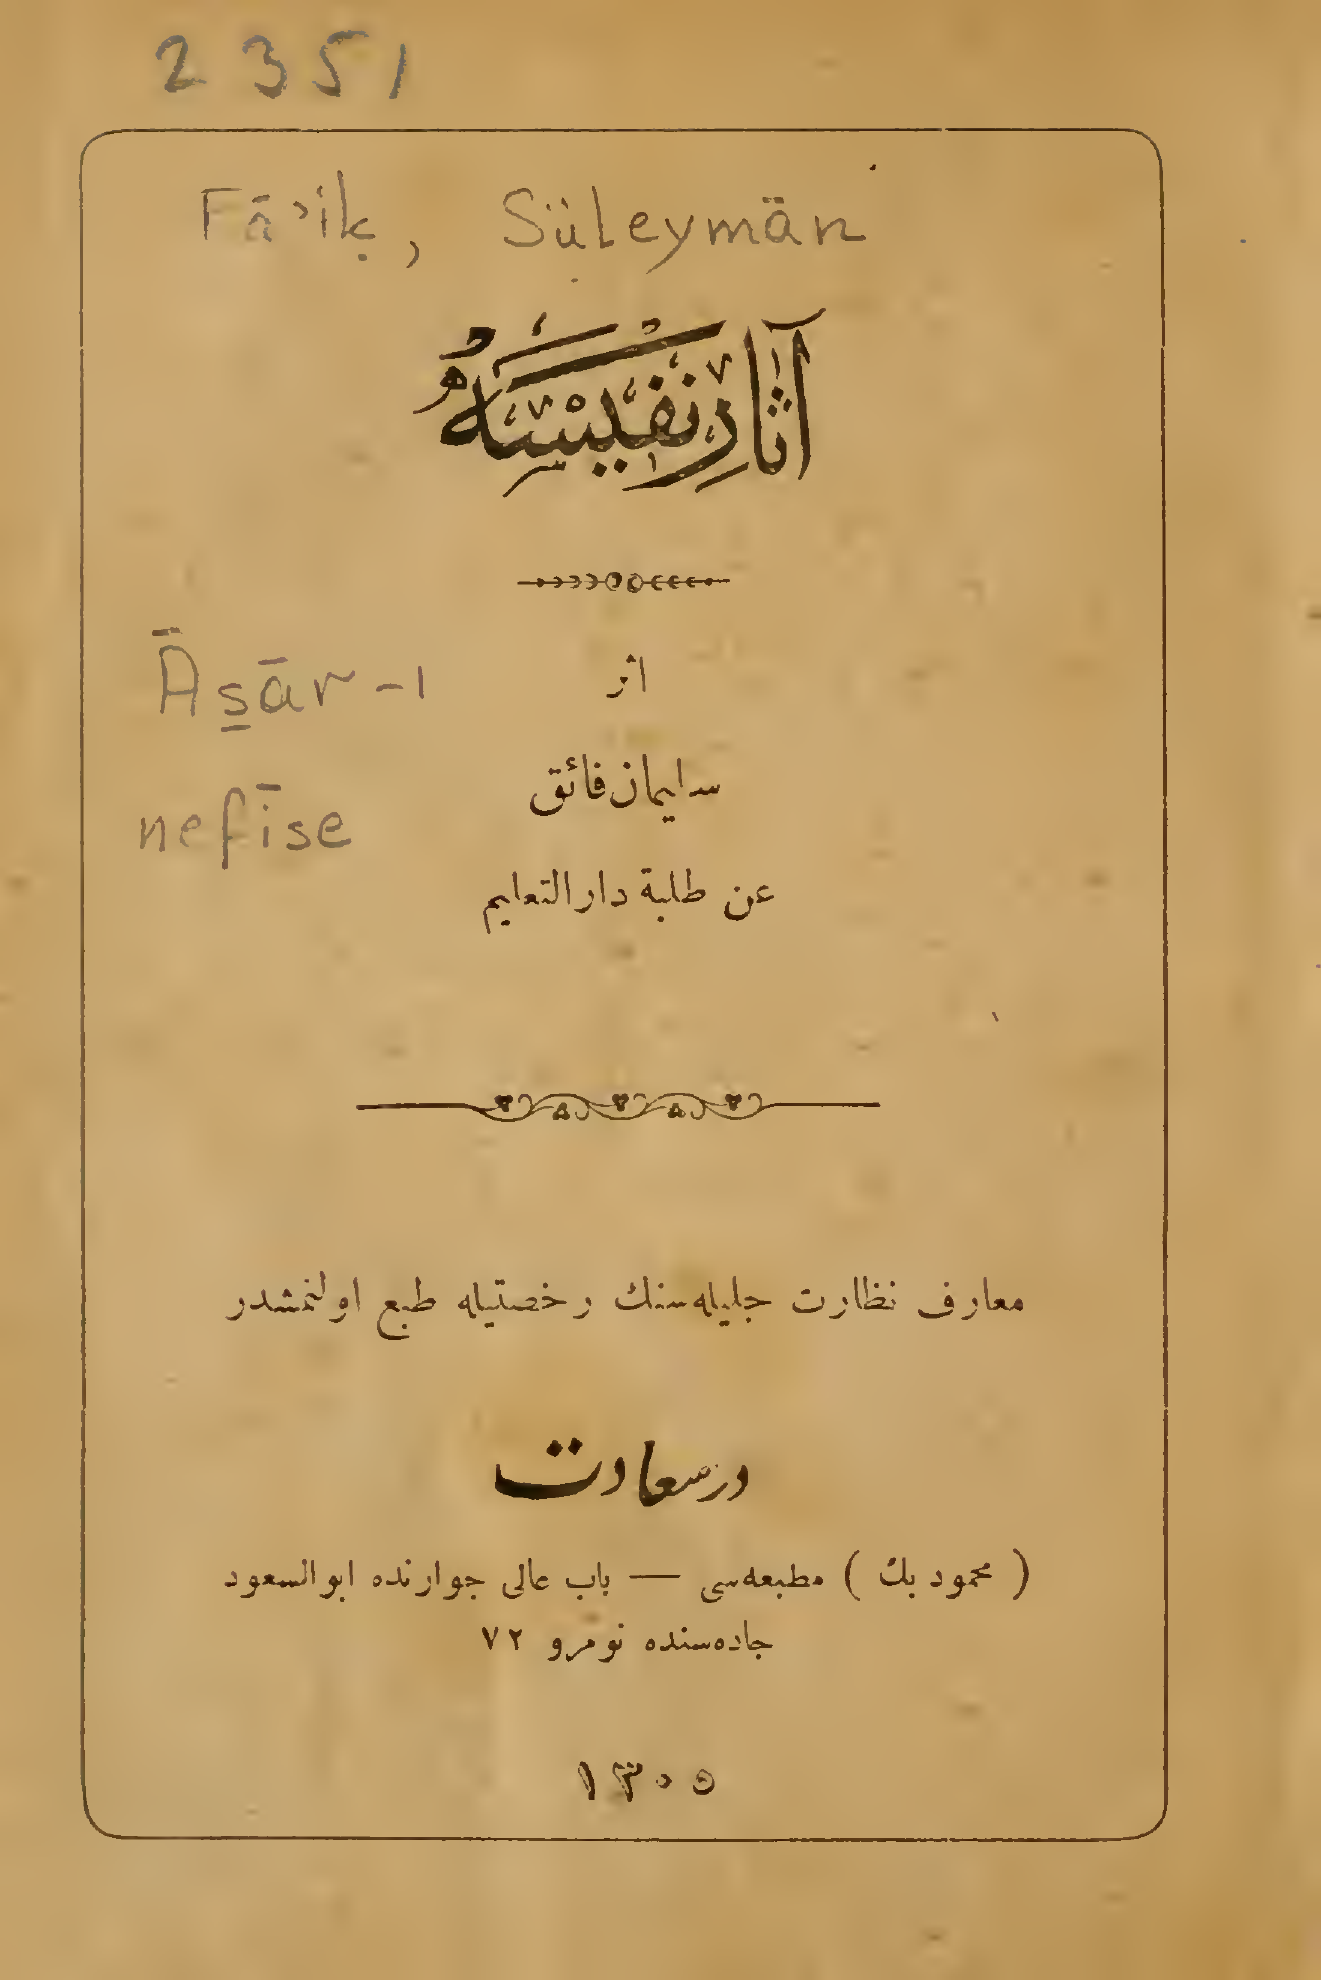 2351
Fāʾiḳ, Süleymān
آثار نفیسه
Ās̱ār-ı
اثر
سلیمان فائق
nefīse
عن طلبة دارالتعلیم
معارف نظارت جلیله‌سنك رخصتیله طبع اولنمشدر
درسعادت
( محمود بك ) مطبعه‌سی — باب عالی جوارنده ابوالسعود
جاده‌سنده نومرو ٧٢
١٣٠٥